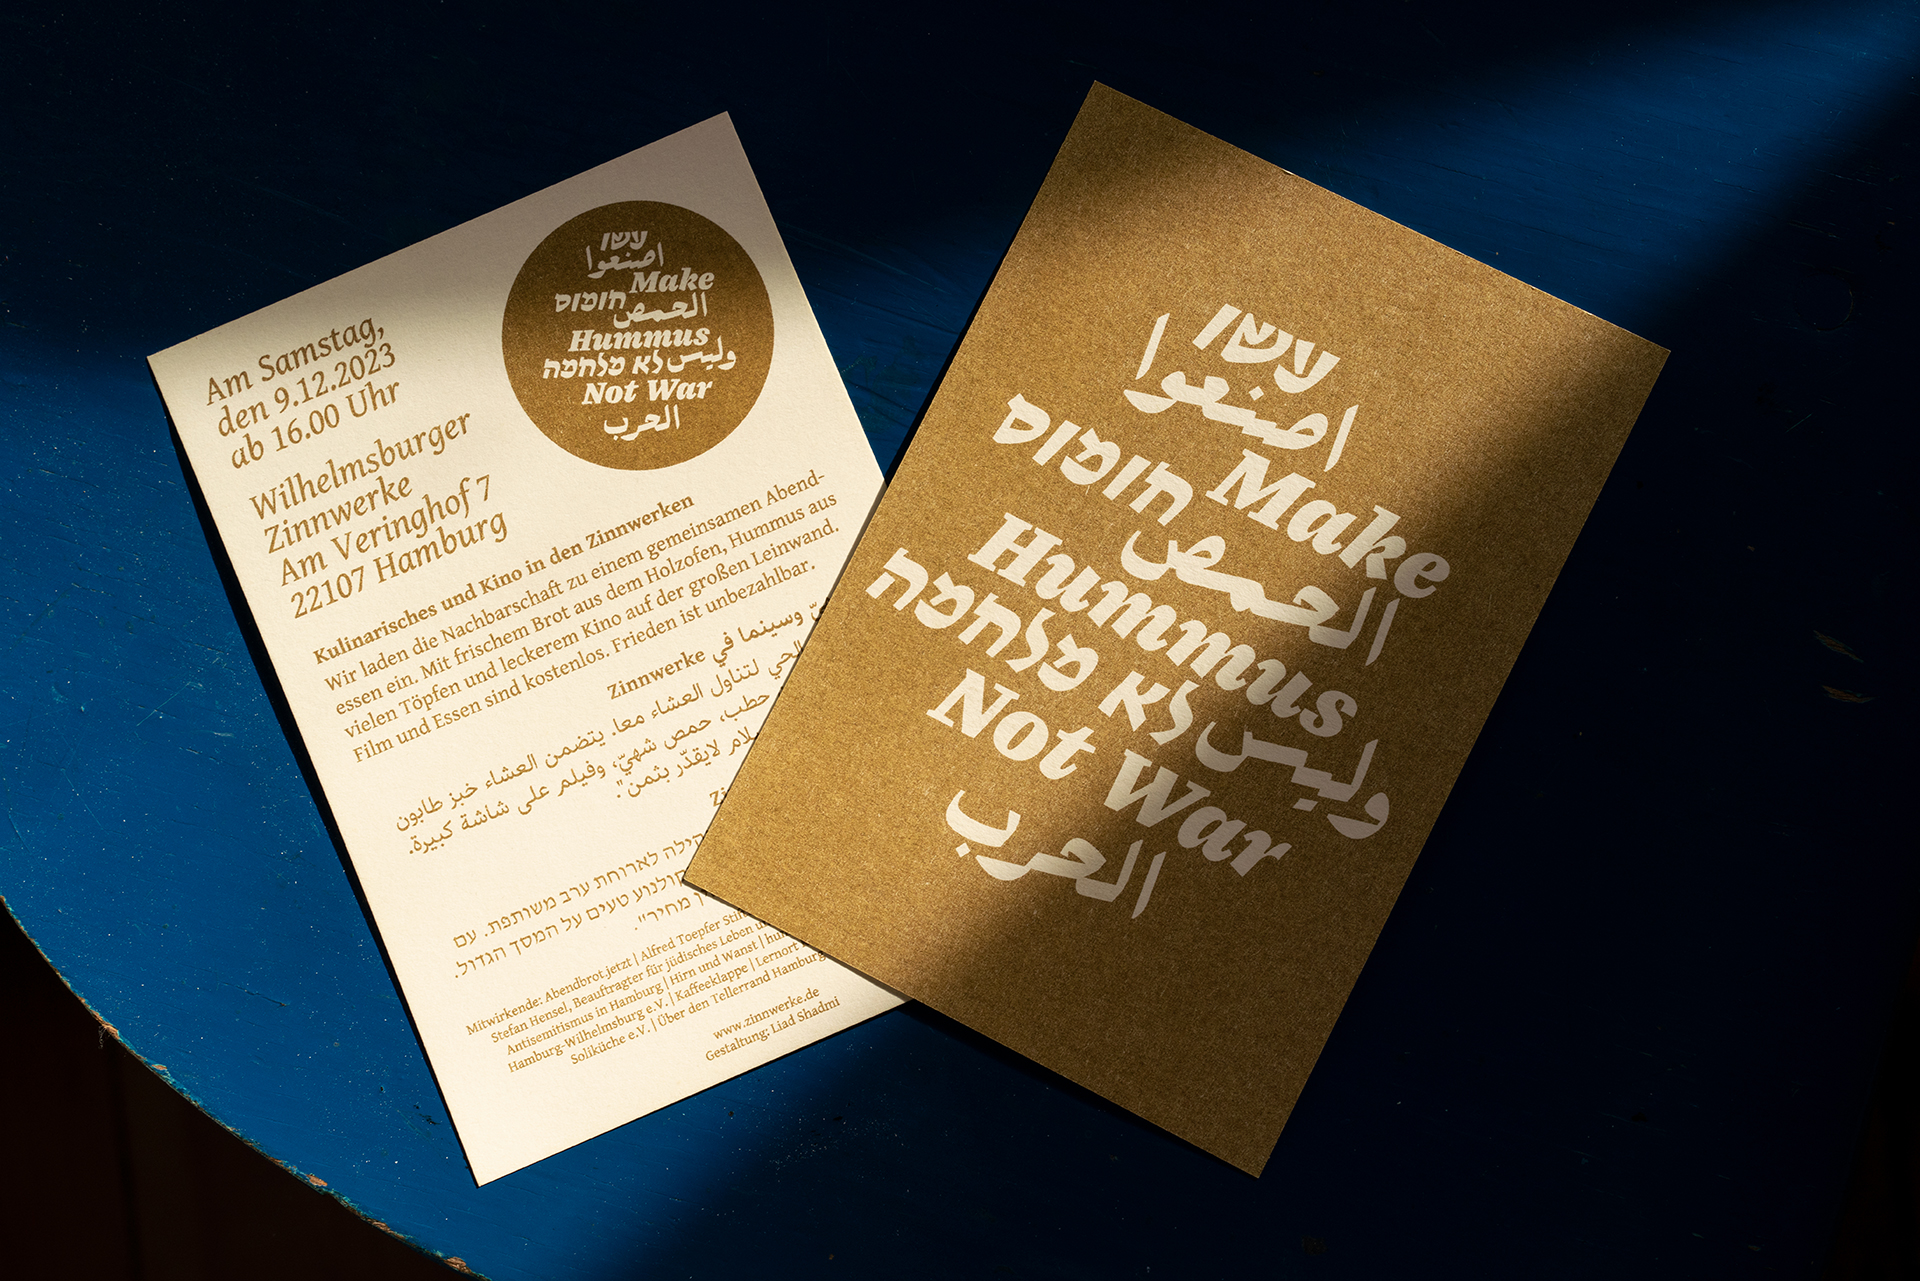 Am Samstag,
den 9.12.2023
ab 16.00 Uhr
Wilhelmsburger
Zinnwerke
Am Veringhof 7
22107 Hamburg
עשו
اصنعوا
Make
חומוס
الحمص
Hummus
וليس לא מלחמה
Not War
الحرب
Kulinarisches und Kino in den Zinnwerken
Wir laden die Nachbarschaft zu einem gemeinsamen Abend-
essen ein. Mit frischem Brot aus dem Holzofen, Hummus aus
vielen Töpfen und leckerem Kino auf der großen Leinwand.
Film und Essen sind kostenlos. Frieden ist unbezahlbar.
وسينما في Zinnwerke
الحي لتناول العشاء معا. يتضمن العشاء خبز طابون
حطب، حمص شهيّ، وفيلم على شاشة كبيرة.
لايقدّر بثمن".
לארוחת ערב משותפת. עם
קולנוע טעים על המסך הגדול.
מחיר".
Mitwirkende: Abendbrot.jetzt | Alfred Toepfer
Stefan Hensel, Beauftragter für jüdisches Leben
Antisemitismus in Hamburg | Hirn und Wanst |
Hamburg-Wilhelmsburg e.V. | Kaffeeklappe | Lernort
Soliküche e.V. | Über den Tellerrand Hamburg
www.zinnwerke.de
Gestaltung: Liad Shadmi
עשו
اصنعوا
Make
חומוס
الحمص
Hummus
وليس לא מלחמה
Not War
الحرب